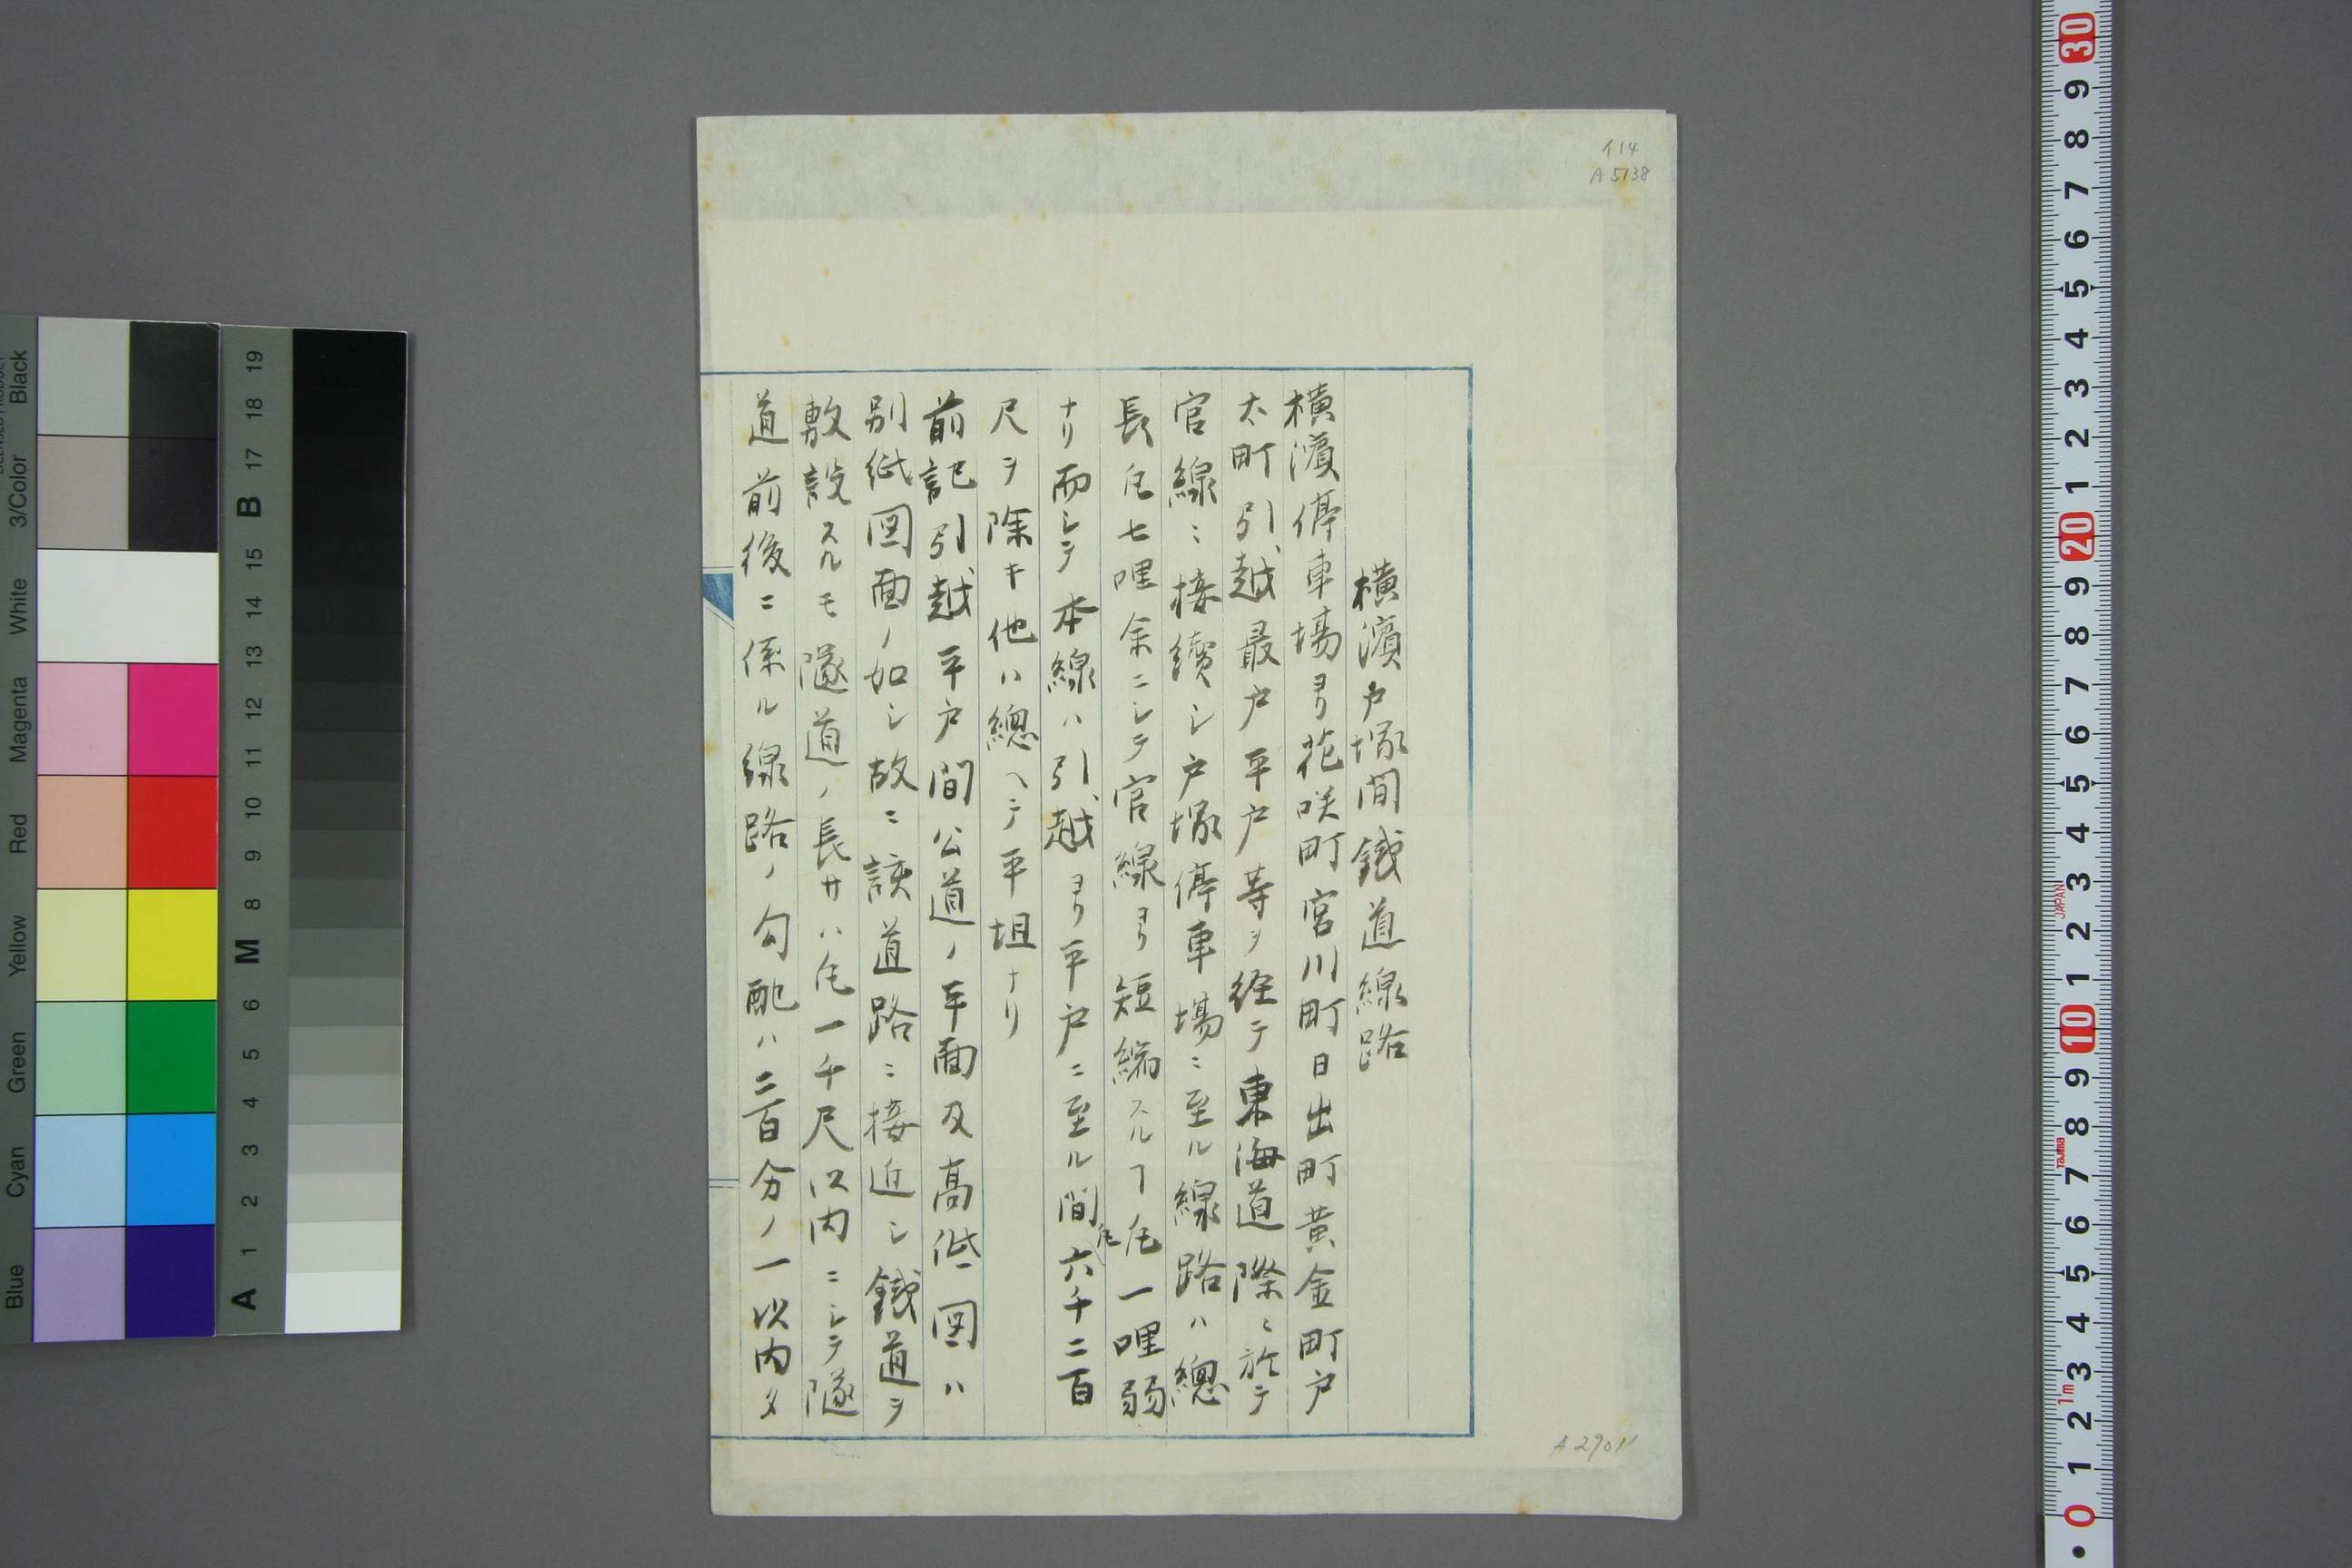 イ14
A5138
横濱戸塚間鐵道線路
横濱停車場ゟ花咲町宮川町日出町黄金町戸
太町引越最戸平戸等ヲ経テ東海道際ニ於テ
官線ニ接續シ戸塚停車場ニ至ル線路ハ總
長凡七哩余ニシテ官線ゟ短縮スルヿ凡一哩弱
ナリ而シテ本線ハ引越ヨリ平戸ニ至ル間凡六千二百
尺ヲ除キ他ハ總ヘテ平坦ナリ
前記引越平戸間公道ノ平面及高低図ハ
別紙図面ノ如シ故ニ該道路ニ接近シ鐵道ヲ
敷設スルモ隧道ノ長サハ凡一千尺以内ニシテ隧
道前後ニ係ル線路ノ勾配ハ二百分ノ一以内タ
A2901
Black
3/Color
White
Magenta
Red
Yellow
Green
Cyan
Blue
19
18
17
B
15
14
13
12
11
10
9
8
M
6
5
4
3
2
1
A
30
9
8
7
6
5
4
3
2
1
20
9
8
7
6
5
4
3
JAPAN
2
1
10
9
8
Tajima
7
6
5
4
3
1m
2
1
0